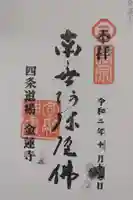 奉拝
令和二年十月
南無阿弥陀佛
四条道場 金蓮寺